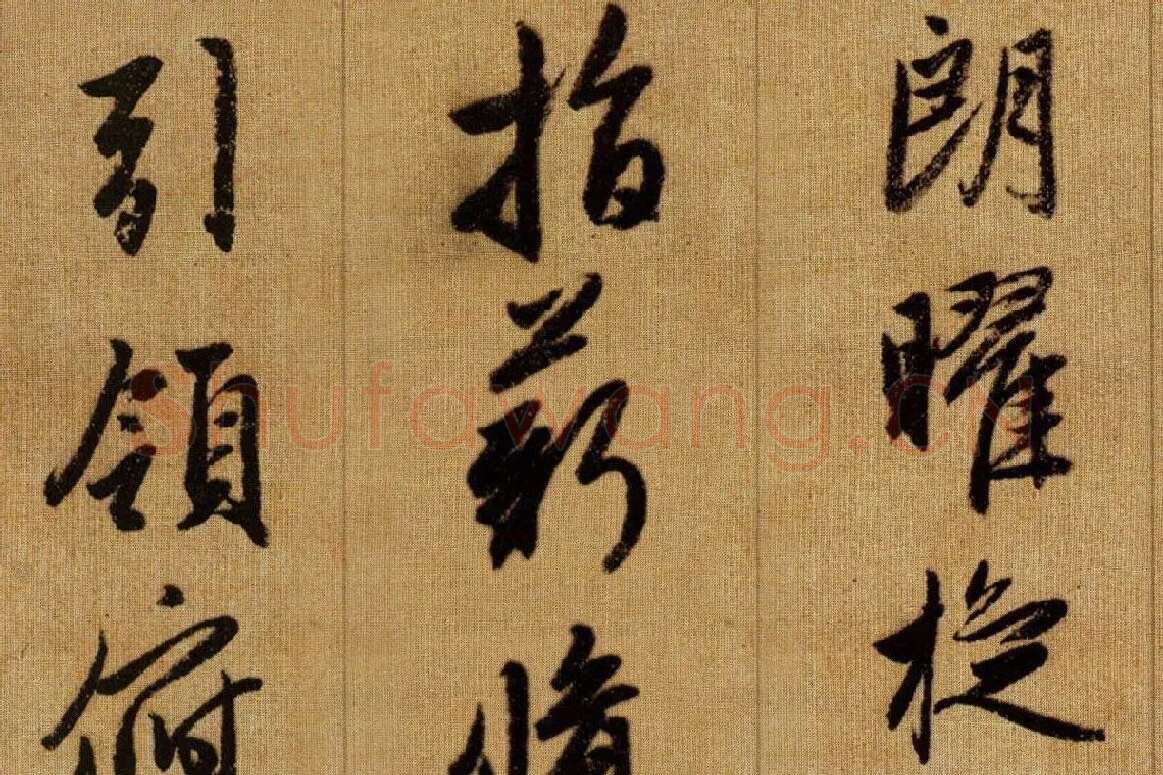 朗曜旋
指薪脩
引領俯
Shufawang.cn